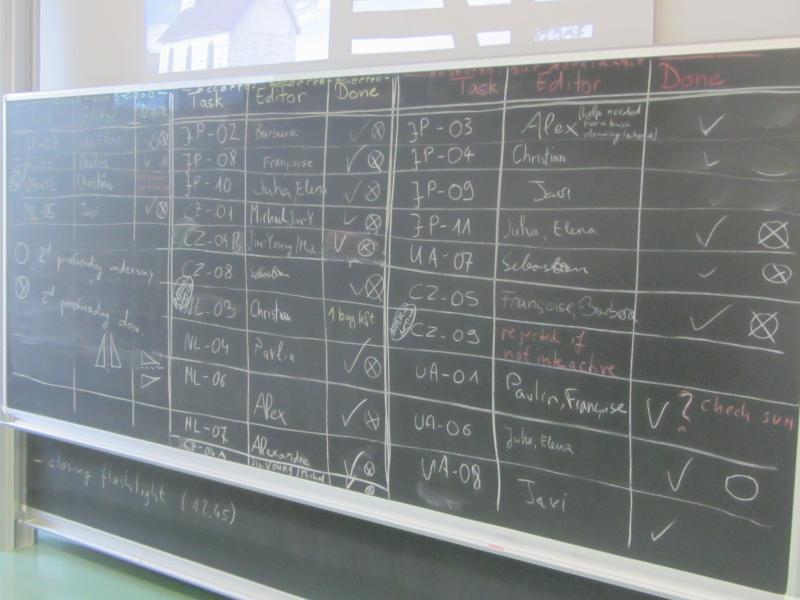 Task Editor Done
JP-07
UA-02 Christian
NL-05 Javi
2nd proofreading underway
2nd proofreading done
Task Editor Done
JP-02 Barbara
JP-08 Françoise
JP-10 Juha, Elena
CZ-01
CZ-04B Jin-Young/
CZ-08 Sebastian
NL-03 Christian 1 bug left
NL-04 Pavlin
NL-06 Alex
NL-07 Alexandre
CZ-04A Jin Young/
Task Editor Done
JP-03 Alex (help needed
JP-04 Christian
JP-09 Javi
JP-11 Juha, Elena
UA-07 Sebastian
CZ-05 Françoise, Barbora
CZ-09 rejected if
not interactive
UA-01 Pavlin, Françoise ? check sum
UA-06 Juha, Elena
UA-08 Javi
- closing flashlight (12.45)